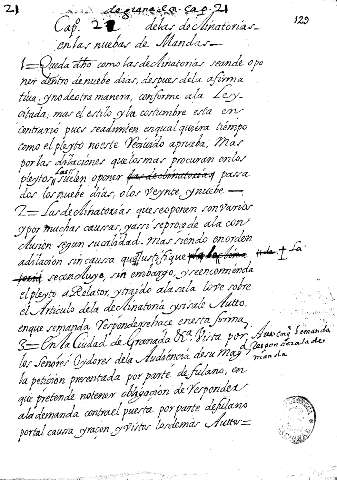 21
de grana. Ca. Cap. 21
129
Cap. 21 de las declinatorias
en las nuebas de Mandas
1 = Queda dho como las declinatorias se ande opo
ner dentro de nuebe dias, despues de la afirma
tiue, y no de otra manera, conforme a la Ley
citada, mas el estilo y la costumbre esta en
contrario pues se admiten en qualquiera tiempo
como el pleyto no este Venido a prueba, Mas
por las dilaciones que los mas procuran en los
pleytos las suelen oponer passa
dos los nuebe dias, o los Veynte y nuebe
2 = Las declinatorias que se oponen son varios
y por muchas causas, y assi se propode a la con
clusion segun su calidad. Mas siendo en orden
a dilacion sin causa que justifique
se concluye, sin embargo, y se encomienda
el pleyto a Relator, y traido a la sala libre sobre
el Articulo de la declinatoria y si sale Autto,
en que se manda Responder se hace en esta forma
3 = En la Ciudad de Granada &ca. Vista por
los Señores Oydores de la Audiencia de su Mag
la peticion presentada por parte de fulano, en
que pretende no tener obligacion de Responder
a la demanda contra el puesta por parte de fulano
por tal causa y raçon, y vistos los demas Auttos =
Autto en q se manda
Responder a la de
manda